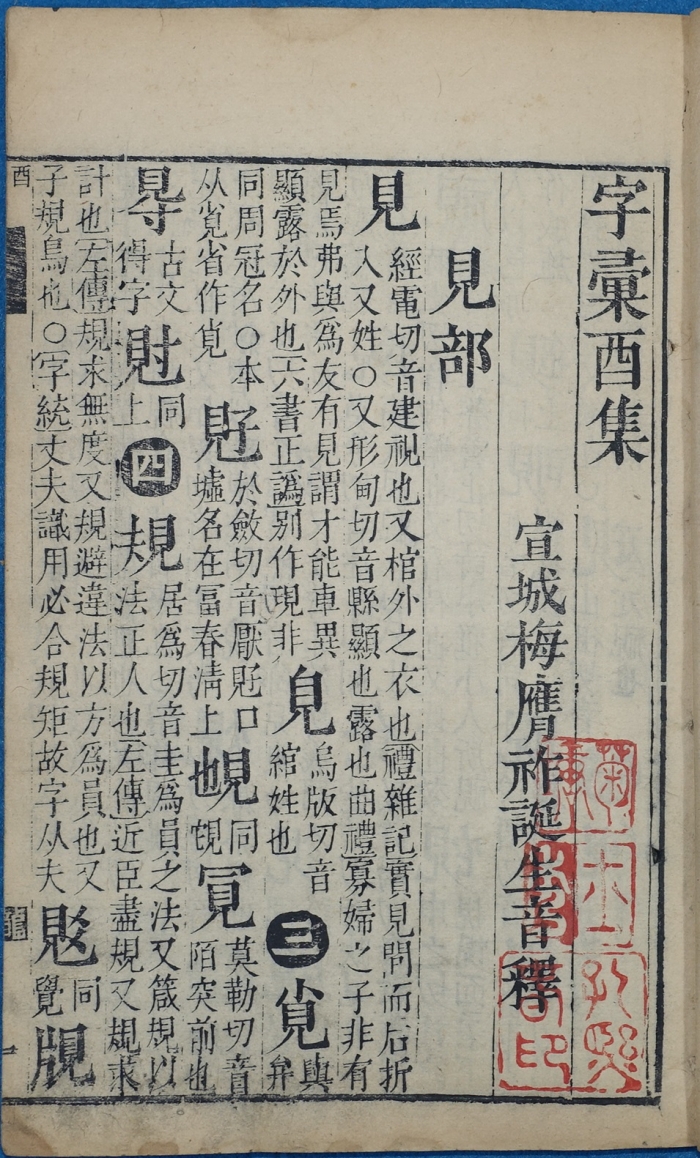 字彙酉集
宣城梅膺祚誕生音釋
見部
見
經電切音建視也又棺外之衣也禮雜記實見間而后折
入又姓○又形甸切音縣顯也露也曲禮寡婦之子非有
見焉弗與爲友有見謂才能車異
顯露於外也六書正譌別作現非
烏版切音
綰姓也
三
覍
與
弁
同周冠名○本
从覍省作覍
於斂切音厭 口
墟名在富春渚上
同
莫勒切音
陌突前也
㝵
古文
得字
同
上
四
規
居爲切音圭爲員之法又箴規以
法正人也左傳近臣盡規又規求
計也左傳規求無度又規避違法以方爲員也又
子規鳥也○字統丈夫識用必合規矩故字从夫
同
覺
酉